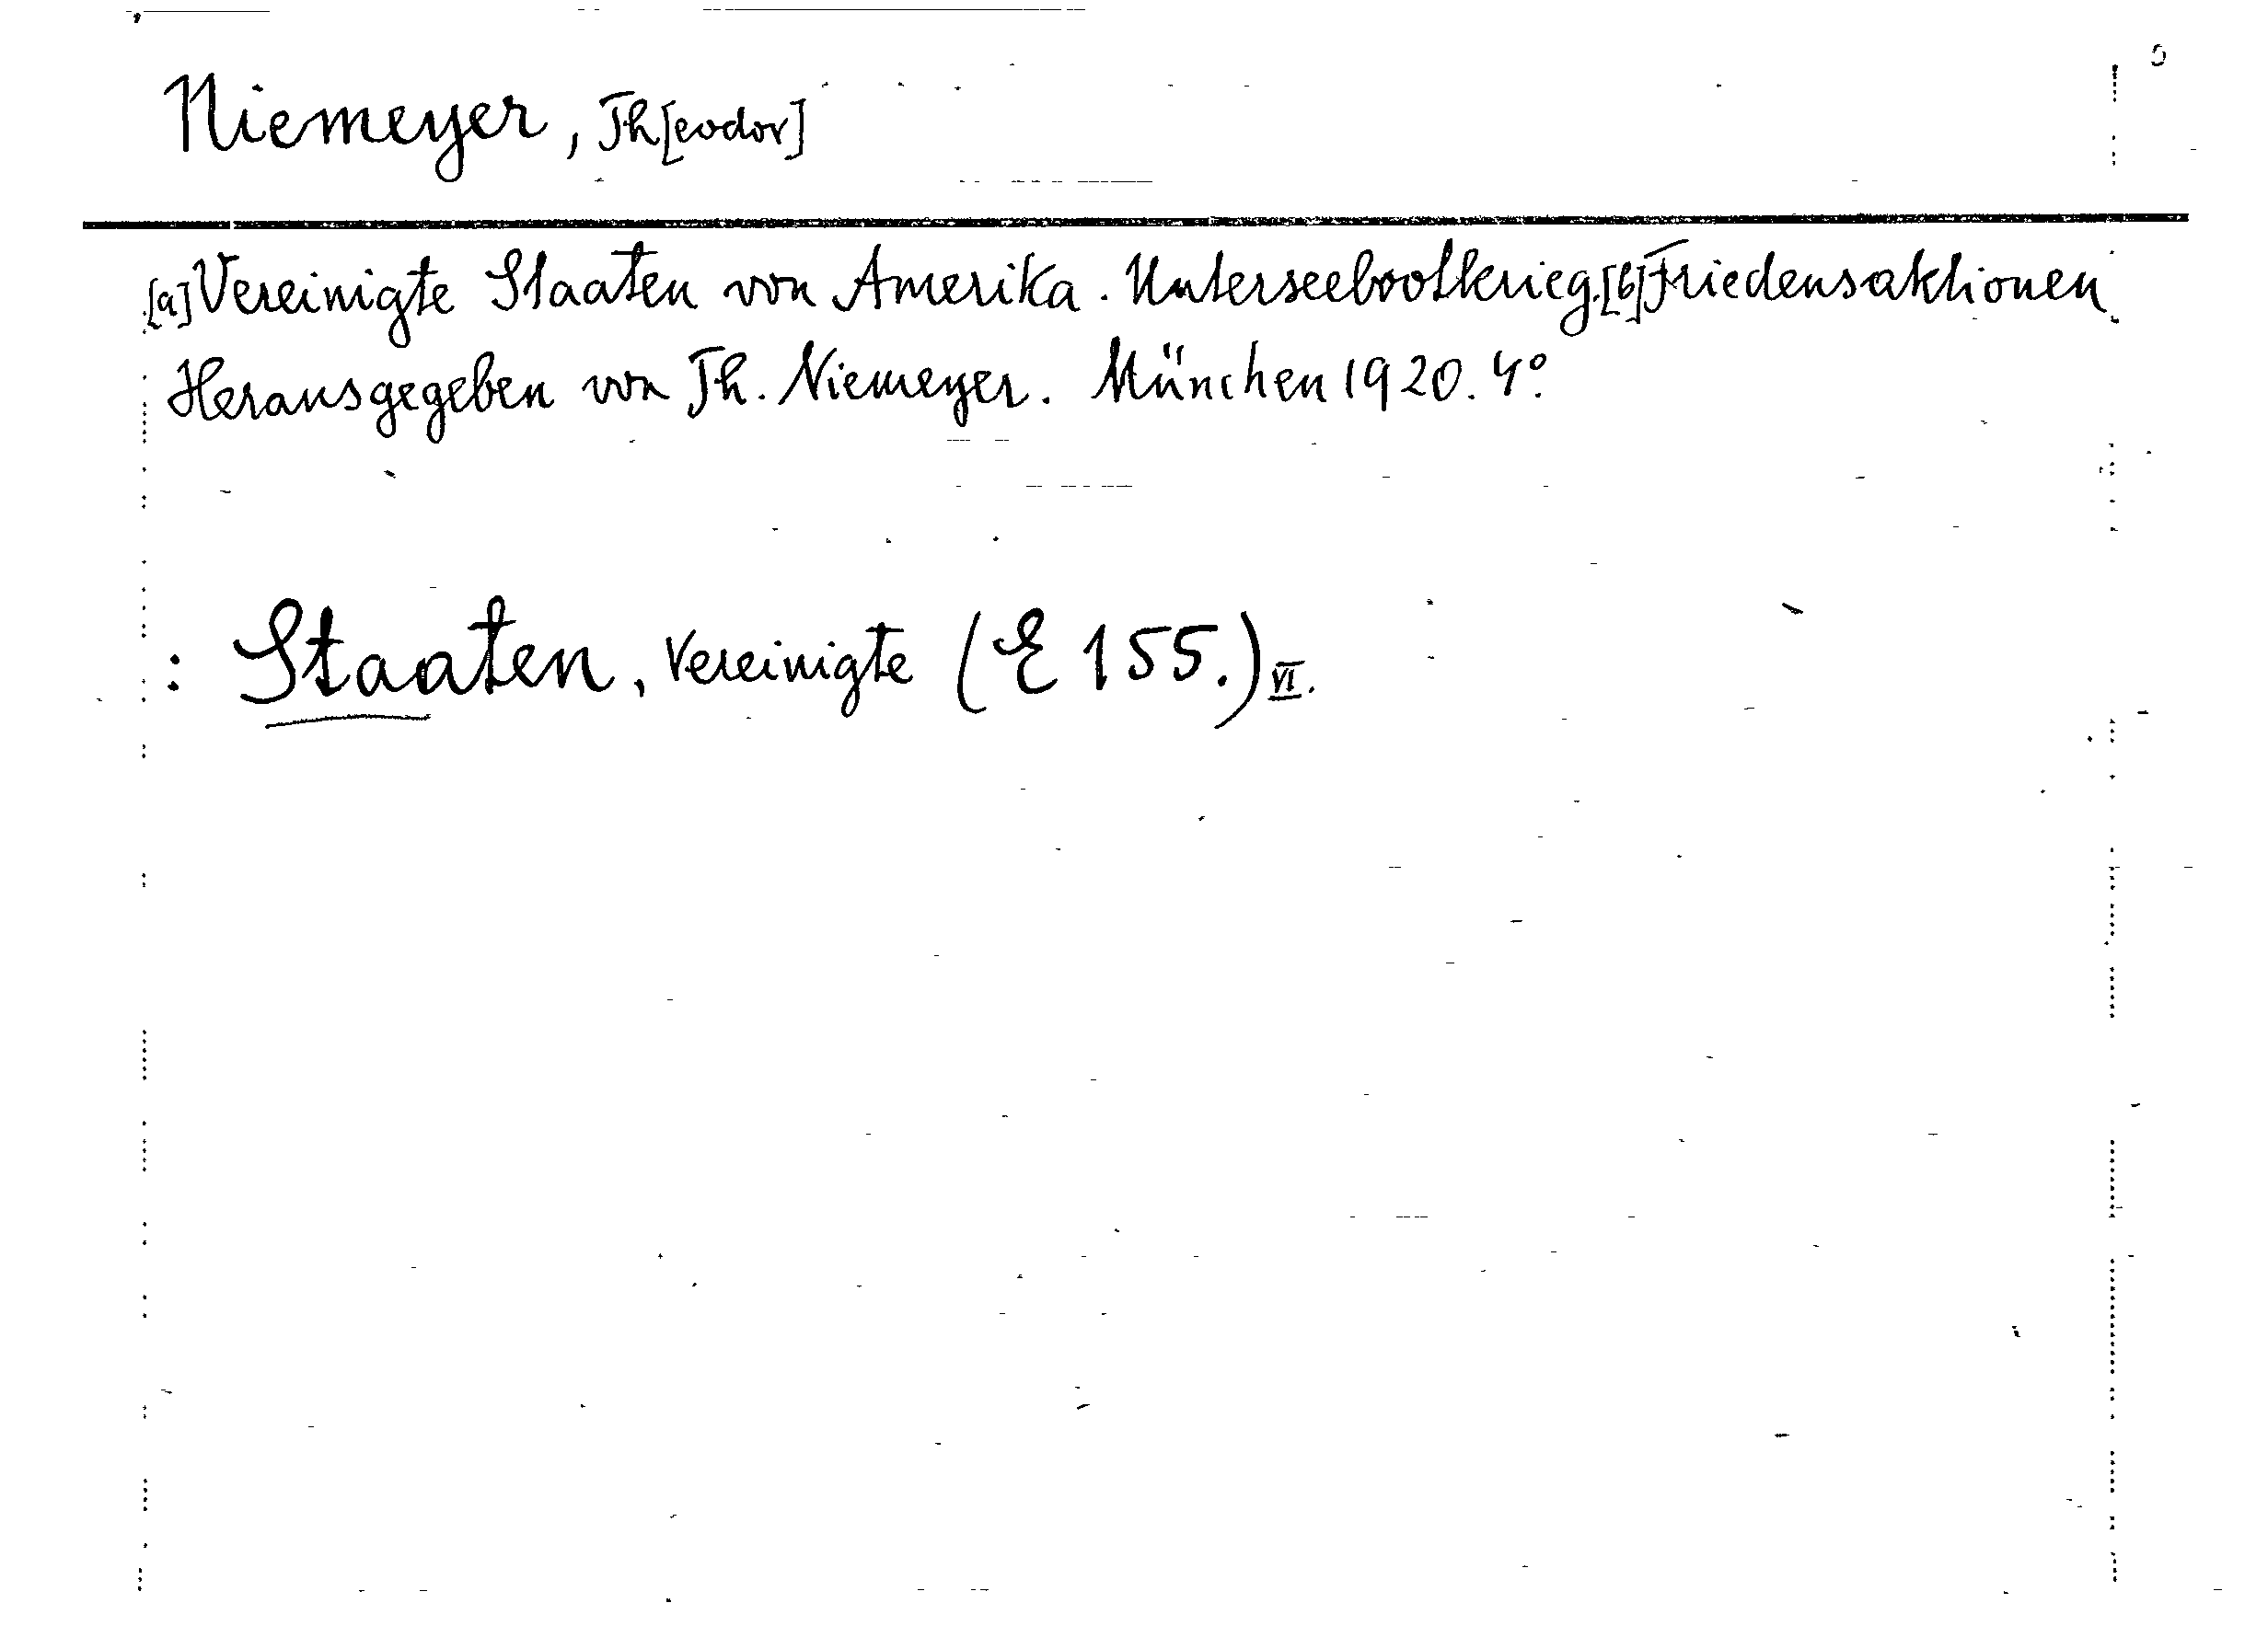 Niemeyer, Th[eodor]
[a] Vereinigte Staaten von Amerika. Unterseebootkrieg. [b] Friedensaktionen.
Herausgegeben von Th. Niemeyer. München 1920. 4°.
: Staaten, Vereinigte (E 155.) VI.